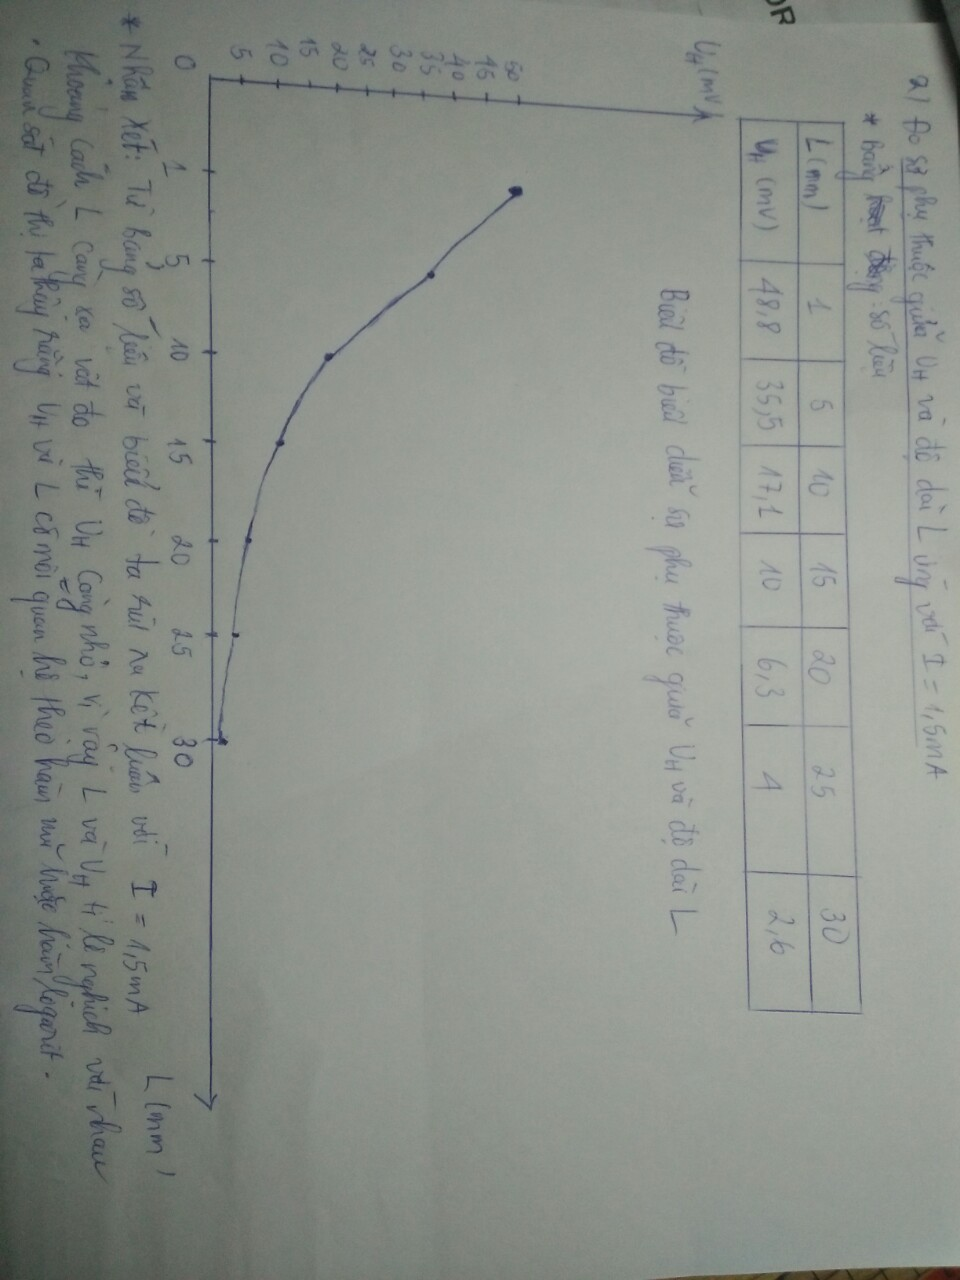 2) Đo sự phụ thuộc giữa UH và độ dài L ứng với I = 1,5mA
* bảng số liệu
L (mm) 1 5 10 15 20 25 30
UH (mV) 48,8 35,5 17,1 10 6,3 4 2,6
Biểu đồ biểu diễn sự phụ thuộc giữa UH và độ dài L
UH (mV)
50
45
40
35
30
25
20
15
10
5
0 1 5 10 15 20 25 30
L (mm)
* Nhận xét: Từ bảng số liệu và biểu đồ ta rút ra kết luận với I = 1,5mA
Khoảng cách L càng xa vật đo thì UH càng nhỏ, vì vậy L và UH tỉ lệ nghịch với nhau
. Quan sát đồ thị ta thấy rằng UH và L có mối quan hệ theo hàm mũ hoặc hàm logarit.
OR